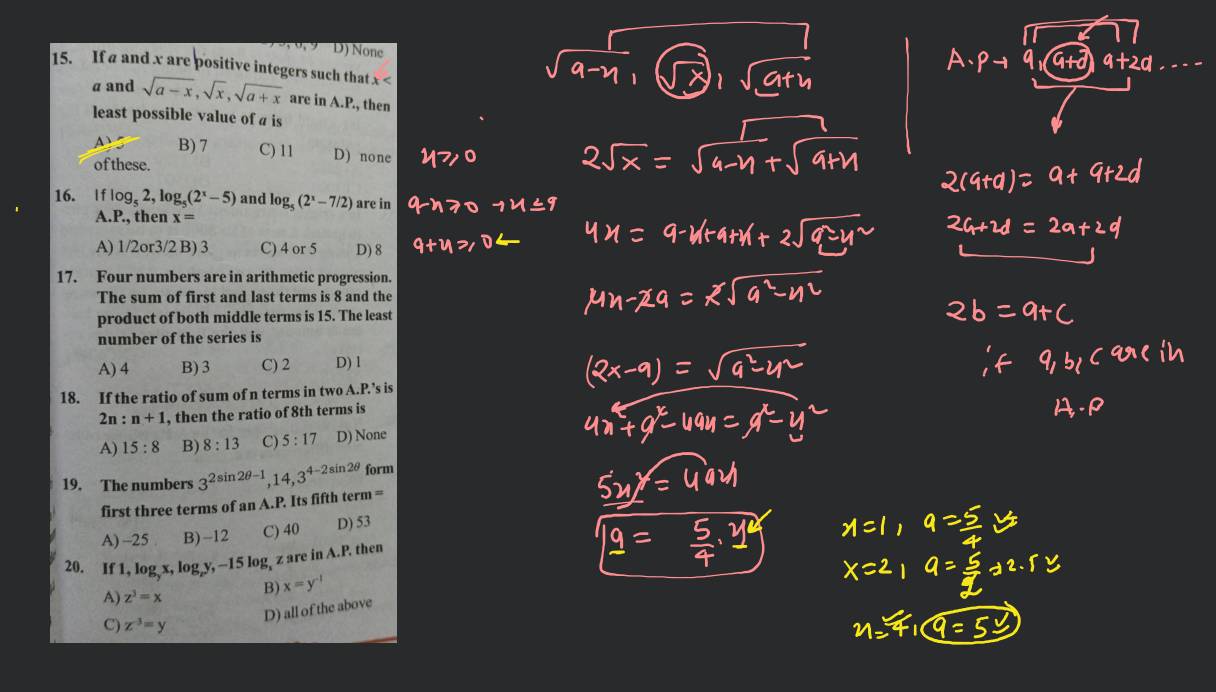 5, 6, 9 D) None
15. If a and x are positive integers such that x <
a and √a – x, √x, √a + x are in A.P., then
least possible value of a is
A) 5 B) 7 C) 11 D) none
of these.
16. If log₅ 2, log₅(2ˣ – 5) and log₅ (2ˣ – 7/2) are in
A.P., then x =
A) 1/2or3/2 B) 3 C) 4 or 5 D) 8
17. Four numbers are in arithmetic progression.
The sum of first and last terms is 8 and the
product of both middle terms is 15. The least
number of the series is
A) 4 B) 3 C) 2 D) 1
18. If the ratio of sum of n terms in two A.P.'s is
2n : n + 1, then the ratio of 8th terms is
A) 15 : 8 B) 8 : 13 C) 5 : 17 D) None
19. The numbers 3^(2 sin 2θ–1), 14, 3^(4–2 sin 2θ) form
first three terms of an A.P. Its fifth term =
A) –25 B) –12 C) 40 D) 53
20. If 1, logᵧx, log_z y, –15 logₓ z are in A.P. then
A) z³ = x B) x = y⁻¹
C) z⁻³ = y D) all of the above
x ≥ 0
a-x ≥ 0 → x ≤ a
a+x ≥ 0 ←
√a-x, √x, √a+x
2√x = √a-x + √a+x
4x = a-x+a+x + 2√a²-x²
4x-2a = 2√a²-x²
(2x-a) = √a²-x²
4x²+a²-4ax = a²-x²
5x² = 4ax
a = 5/4 . x
A.P → a, a+d, a+2d ....
2(a+d) = a + a+2d
2a+2d = 2a+2d
2b = a+c
if a, b, c are in
A.P
x=1, a = 5/4
x=2, a = 5/2 → 2.5
x=4, a = 5